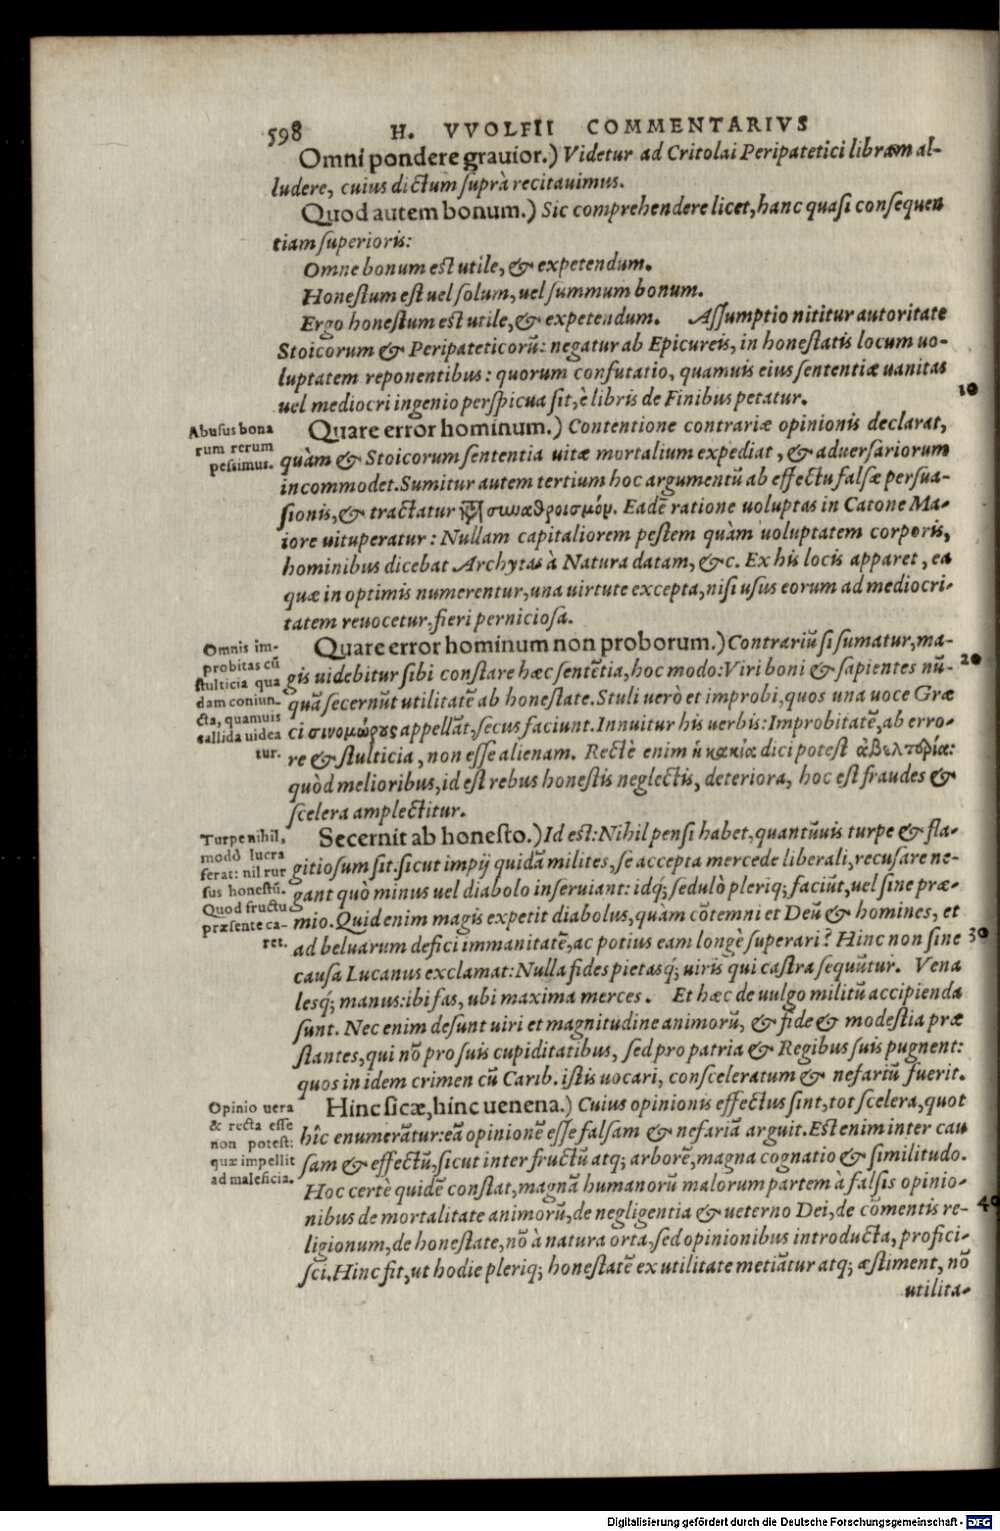 598 H. VVOLFII COMMENTARIVS
Omni pondere grauior.) Videtur ad Critolai Peripatetici libram al-
ludere, cuius dictum suprà recitauimus.
Quod autem bonum.) Sic comprehendere licet, hanc quasi consequen
tiam superioris:
Omne bonum est utile, & expetendum.
Honestum est uel solum, uel summum bonum.
Ergo honestum est utile, & expetendum. Assumptio nititur autoritate
Stoicorum & Peripateticorū: negatur ab Epicureis, in honestatis locum uo-
luptatem reponentibus: quorum confutatio, quamuis eius sententiæ uanitas
10
uel mediocri ingenio perspicua sit, è libris de Finibus petatur.
Abusus bona
rum rerum
pessimus.
Quare error hominum.) Contentione contrariæ opinionis declarat,
quàm & Stoicorum sententia uitæ mortalium expediat, & aduersariorum
incommodet. Sumitur autem tertium hoc argumentū ab effectu falsæ persua-
sionis, & tractatur συναθροισμόν. Eadē ratione uoluptas in Catone Ma-
iore uituperatur: Nullam capitaliorem pestem quàm uoluptatem corporis,
hominibus dicebat Archytas à Natura datam, &c. Ex his locis apparet, ea
quæ in optimis numerentur, una uirtute excepta, nisi usus eorum ad mediocri-
tatem reuocetur, fieri perniciosa.
Omnis im-
probitas cū
stulticia qua
dam coniun-
cta, quamuis
callida uidea
tur.
Quare error hominum non proborum.) Contrariū si sumatur, ma-
20
gis uidebitur sibi constare hæc sentētia, hoc modo: Viri boni & sapientes nū-
quā secernūt utilitatē ab honestate. Stuli uerò et improbi, quos una uoce Græ
ci σινομώρους appellāt, secus faciunt. Innuitur his uerbis: Improbitatē, ab erro-
re & stulticia, non esse alienam. Rectè enim ἡ κακία dici potest ἀβελτορία:
quòd melioribus, id est rebus honestis neglectis, deteriora, hoc est fraudes &
scelera amplectitur.
Turpe nihil,
modò lucra
ferat: nil rur
sus honestū.
Quod fructu
præsente ca-
ret.
Secernit ab honesto.) Id est: Nihil pensi habet, quantūuis turpe & fla-
gitiosum sit. sicut impij quidā milites, se accepta mercede liberali, recusare ne-
gant quò minus uel diabolo inseruiant: idq; sedulò pleriq; faciūt, uel sine præ-
mio. Quid enim magis expetit diabolus, quàm cōtemni et Deū & homines, et
30
ad beluarum defici immanitatē, ac potius eam longè superari? Hinc non sine
causa Lucanus exclamat: Nulla fides pietasq́; uiris qui castra sequūtur. Vena
lesq́; manus: ibi fas, ubi maxima merces. Et hæc de uulgo militū accipienda
sunt. Nec enim desunt uiri et magnitudine animorū, & fide & modestia præ
stantes, qui nō pro suis cupiditatibus, sed pro patria & Regibus suis pugnent:
quos in idem crimen cū Carib. istis uocari, consceleratum & nefariū fuerit.
Opinio uera
& recta esse
non potest:
quæ impellit
ad maleficia.
Hinc sicæ, hinc uenena.) Cuius opinionis effectus sint, tot scelera, quot
hîc enumerātur: eā opinionē esse falsam & nefariā arguit. Est enim inter cau
sam & effectū, sicut inter fructū atq; arborē, magna cognatio & similitudo.
Hoc certè quidē constat, magnā humanorū malorum partem à falsis opinio-
40
nibus de mortalitate animorū, de negligentia & ueterno Dei, de cōmentis re-
ligionum, de honestate, nō à natura orta, sed opinionibus introducta, profici-
sci. Hinc fit, ut hodie pleriq; honestatē ex utilitate metiātur atq; æstiment, nō
utilita-
Digitalisierung gefördert durch die Deutsche Forschungsgemeinschaft - DFG